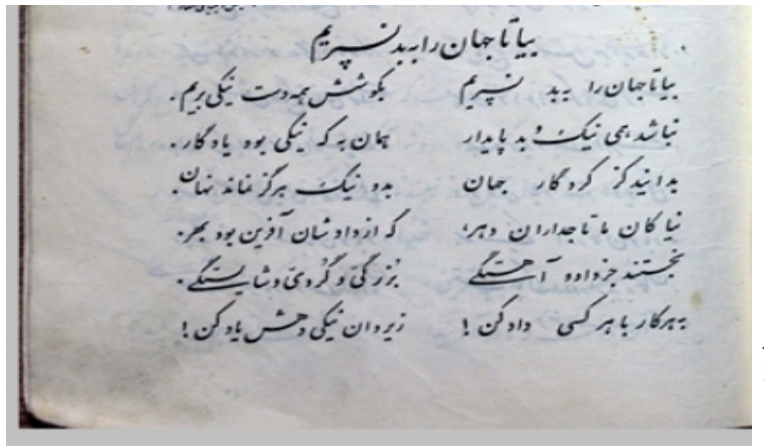 بیا تا جهان را به بد نسپریم
بیا تا جهان را به بد نسپریم بکوشش همه دست نیکی بریم.
نباشد همی نیک و بد پایدار همان به که نیکی بود یادگار.
بدانید کز کردگار جهان بد و نیک هرگز نماند نهان.
نیاکان ما تاجداران دهر، که از دادشان آفرین بود بهر.
نجستند جز داد و آهستگی بزرگی و گردی و شایستگی.
به هر کار با هر کسی داد کن! ز یزدان نیکی دهش یاد کن!